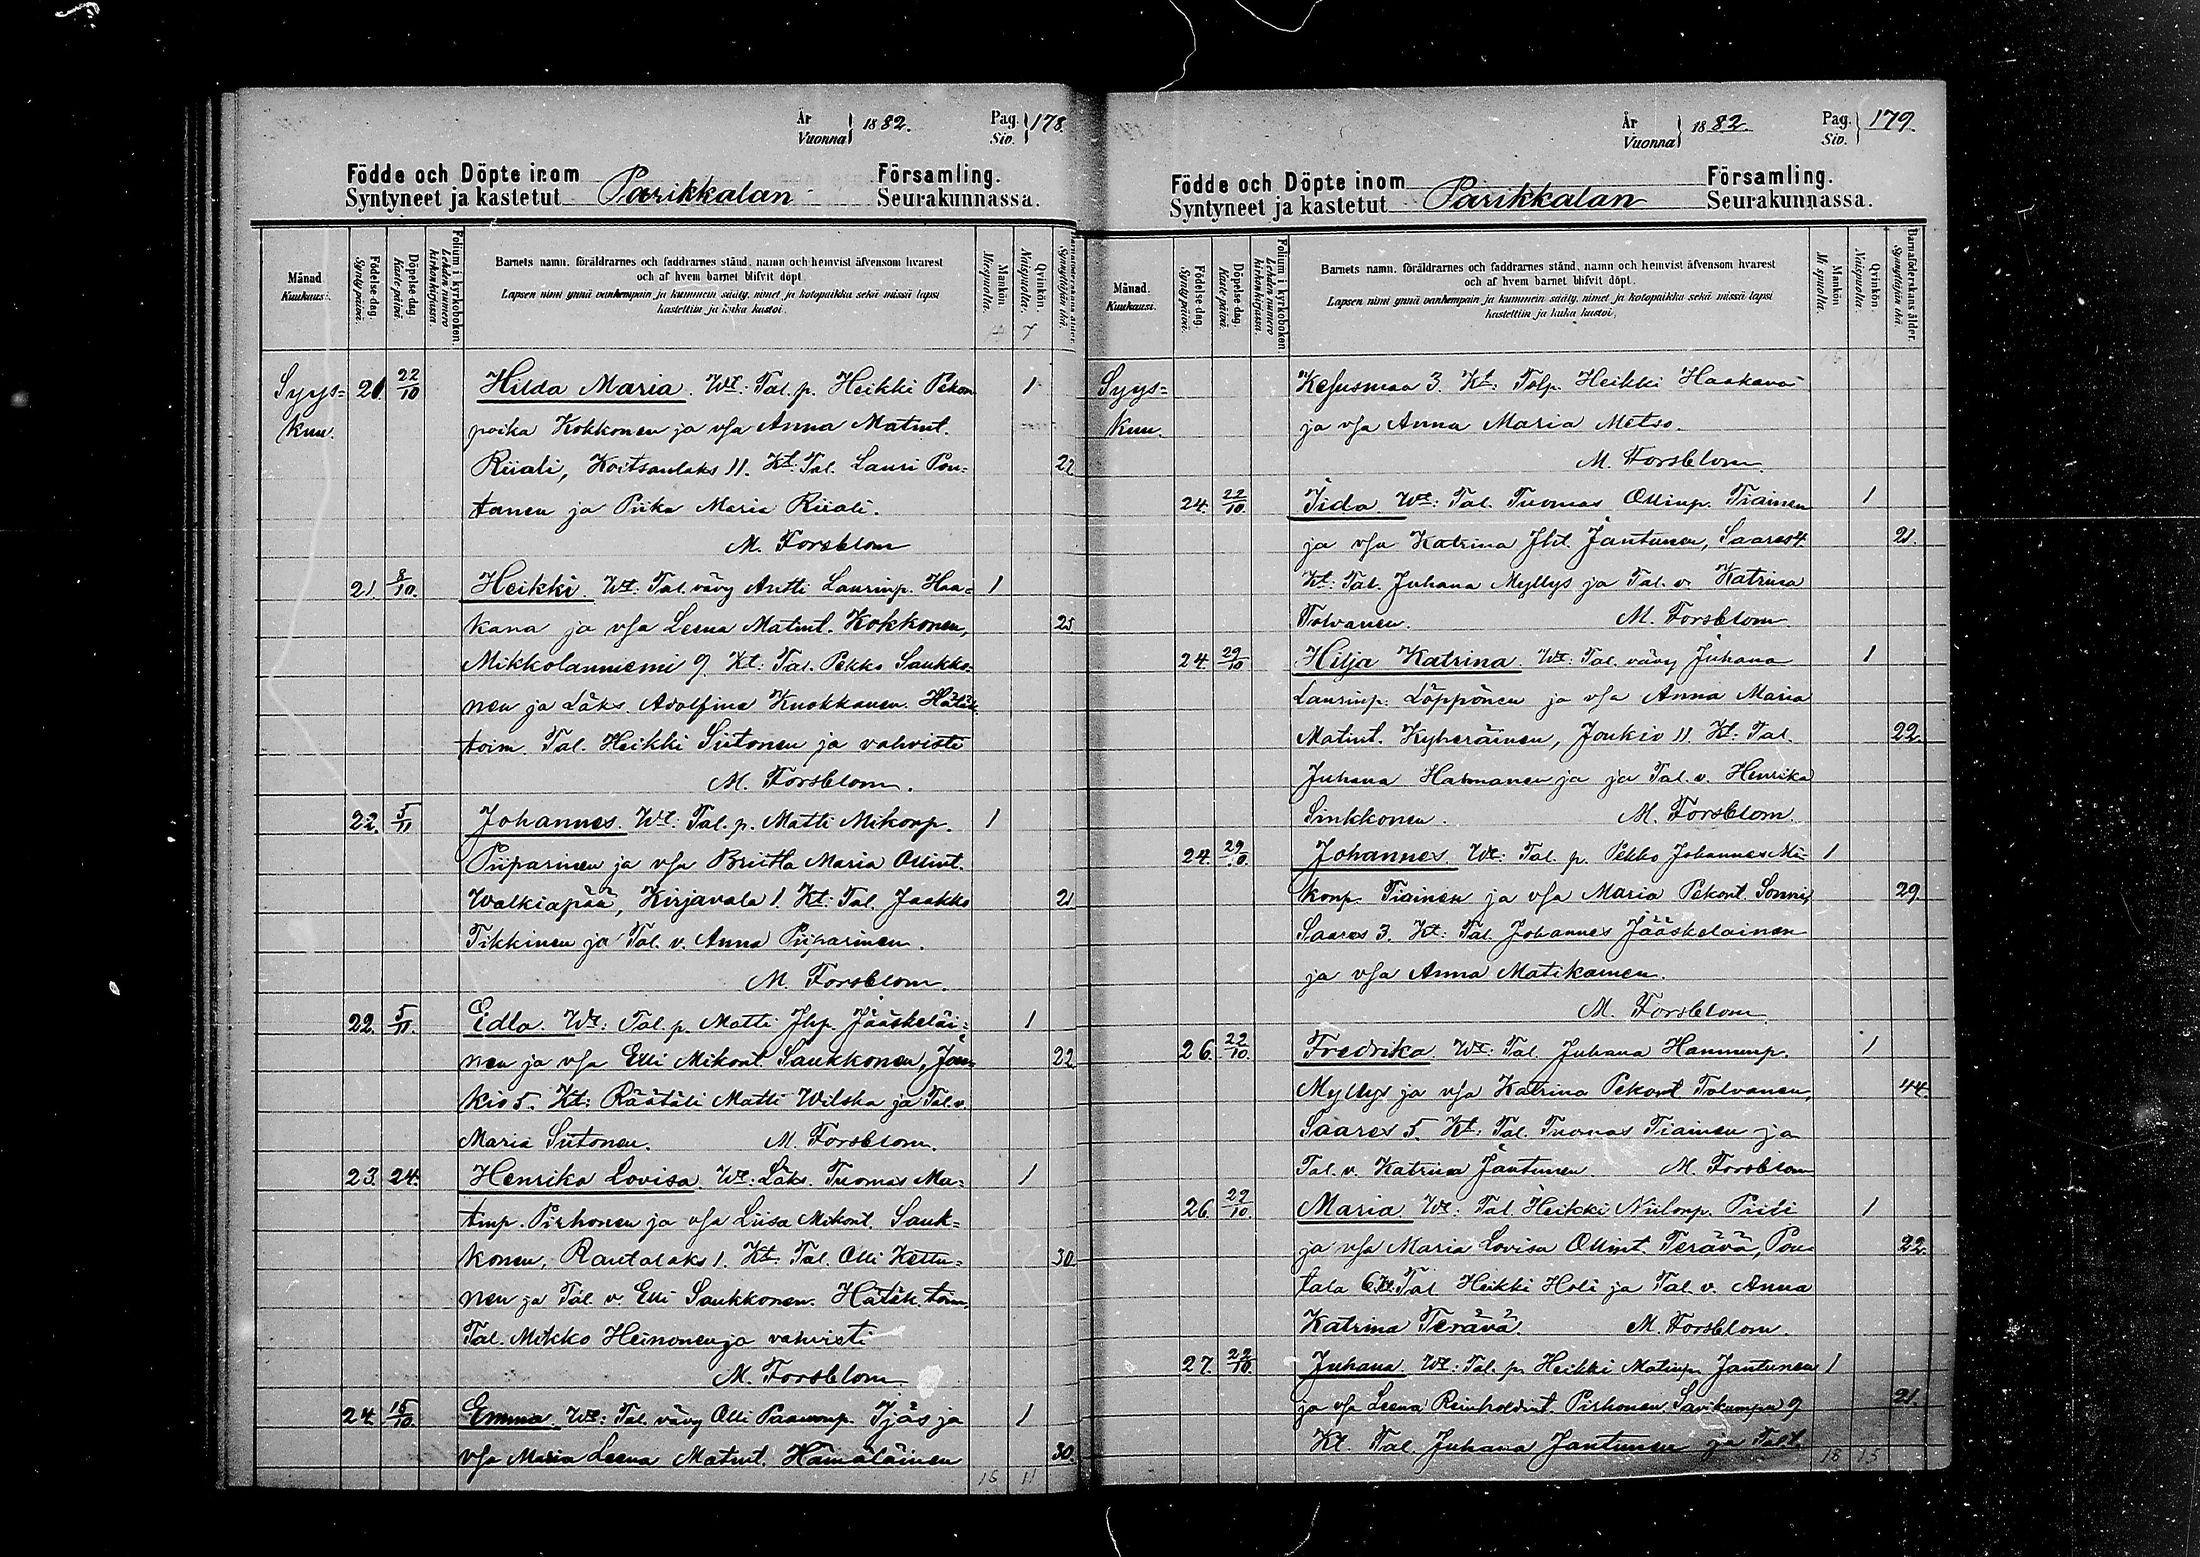 År
Vuonna } 1882.
Pag.
Siv. } 178.
Födde och Döpte inom
Syntyneet ja kastetut
Parikkalan
Församling.
Seurakunnassa.
Månad.
Kuukausi.
Födelse-dag.
Synty päivä.
Döpelse-dag.
Kaste päivä.
Folium i kyrkoboken.
Lehden numero kirkonkirjassa.
Barnets namn, föräldrarnes och faddrarnes stånd, namn och hemvist äfvensom hvarest
och af hvem barnet blifvit döpt.
Lapsen nimi ynnä vanhempain ja kummein sääty, nimet ja kotopaikka sekä missä lapsi
kastettiin ja kuka kastoi.
Mankön
Miespuolta.
Qvinkön.
Naispuolta.
Barnaföderskans ålder.
Synnyttäjän ikä.
7
Syys= 21. 22/10 Hilda Maria. Wt: Tal. p. Heikki Pekon 1
kuu. poika Kokkonen ja vsa Anna Matint.
Riiali, Koitsanlaks 11. Kt: Tal. Lauri Pon= 22
tanen ja Piika Maria Riiali.
M. Forsblom
21. 8/10. Heikki Wt: Tal. vävy Antti Laurinp. Haa= 1
kana ja vsa Leena Matint. Kokkonen, 25
Mikkolanniemi 9. Kt: Tal. Pekko Saukko=
nen ja Läks. Adolfina Kuokkanen. Hätäk.
toim. Tal. Heikki Siitonen ja vahvisti
M. Forsblom.
22. 5/11 Johannes. Wt: Tal. p. Matti Mikonp. 1
Piiparinen ja vsa Briitta Maria Ollint.
Walkiapää, Kirjavala 1. Kt: Tal. Jaakko 21
Tikkinen ja Tal. v. Anna Piiparinen.
M. Forsblom.
22. 5/11. Edla. Wt: Tal. p. Matti Jhp. Jääskeläi= 1
nen ja vsa Elli Mikont. Saukkonen, Jou= 22
kio 5. Kt: Räätäli Matti Wilska ja Tal. v.
Maria Siitonen. M. Forsblom.
23. 24. Henrika Lovisa. Wt: Läks. Tuomas Ma= 1
tinp. Pirhonen ja vsa Liisa Mikont. Sauk=
konen, Rautalaks 1. Kt: Tal. Olli Kettu= 30
nen ja Tal. v. Elli Saukkonen. Hätäk. toim.
Tal. Mikko Heinonen ja vahvisti
M. Forsblom.
24. 15/10. Emma. Wt: Tal. vävy Olli Paavonp. Tjäs ja 1
vsa Maria Leena Matint. Hämäläinen 30.
15 11
År
Vuonna } 1882.
Pag.
Siv. } 179.
Födde och Döpte inom
Syntyneet ja kastetut
Parikkalan
Församling.
Seurakunnassa.
Månad.
Kuukausi.
Födelse-dag.
Synty päivä.
Döpelse-dag.
Kaste päivä.
Folium i kyrkoboken.
Lehden numero kirkonkirjassa.
Barnets namn, föräldrarnes och faddrarnes stånd, namn och hemvist äfvensom hvarest
och af hvem barnet blifvit döpt.
Lapsen nimi ynnä vanhempain ja kummein sääty, nimet ja kotopaikka sekä missä lapsi
kastettiin ja kuka kastoi.
Mankön
Miespuolta.
Qvinkön.
Naispuolta.
Barnaföderskans ålder.
Synnyttäjän ikä.
Syys= Kesusmaa 3. Kt: Talp. Heikki Haakana
kuu. ja vsa Anna Maria Metso.
M. Forsblom.
24. 22/10. Iida. Wt: Tal. Tuomas Ollinp. Tiainen 1
ja vsa Katrina Jht. Jantunen, Saares 4. 21.
Kt: Tal. Juhana Myllys ja Tal. v. Katrina
Tolvanen. M. Forsblom.
24. 29/10 Hilja Katrina. Wt: Tal. vävy Juhana 1
Laurinp. Läppönen ja vsa Anna Maria
Matint. Kyheräinen, Joukio 11. Kt: Tal. 22.
Juhana Hatmanen ja ja Tal. v. Henrika
Sinkkonen. M. Forsblom.
24. 29/10. Johannes. Wt: Tal. p. Pekko Johannes Mi= 1
konp. Tiainen ja vsa Maria Pekont. Sonni, 29.
Saares 3. Kt: Tal. Johannes Jääskeläinen
ja vsa Anna Matikainen.
M. Forsblom.
26. 22/10. Fredrika. Wt: Tal. Juhana Hannunp. 1
Myllys ja vsa Katrina Pekont Tolvanen, 44.
Saares 5. Kt: Tal. Tuomas Tiainen ja
Tal. v. Katrina Jantunen. M. Forsblom
26. 22/10. Maria. Wt: Tal. Heikki Niilonp. Piili 1
ja vsa Maria Lovisa Ollint. Terävä, Pou= 22.
tala 6. Kt: Tal Heikki Holi ja Tal. v. Anna
Katrina Terävä. M. Forsblom.
27. 22/10. Juhana. Wt: Tal. p. Heikki Matinp. Jantunen 1
ja vsa Leena Reinholdint. Pirhonen, Savikumpu 9 21.
Kt. Tal. Juhana Jantunen ja Tal t.
18 15